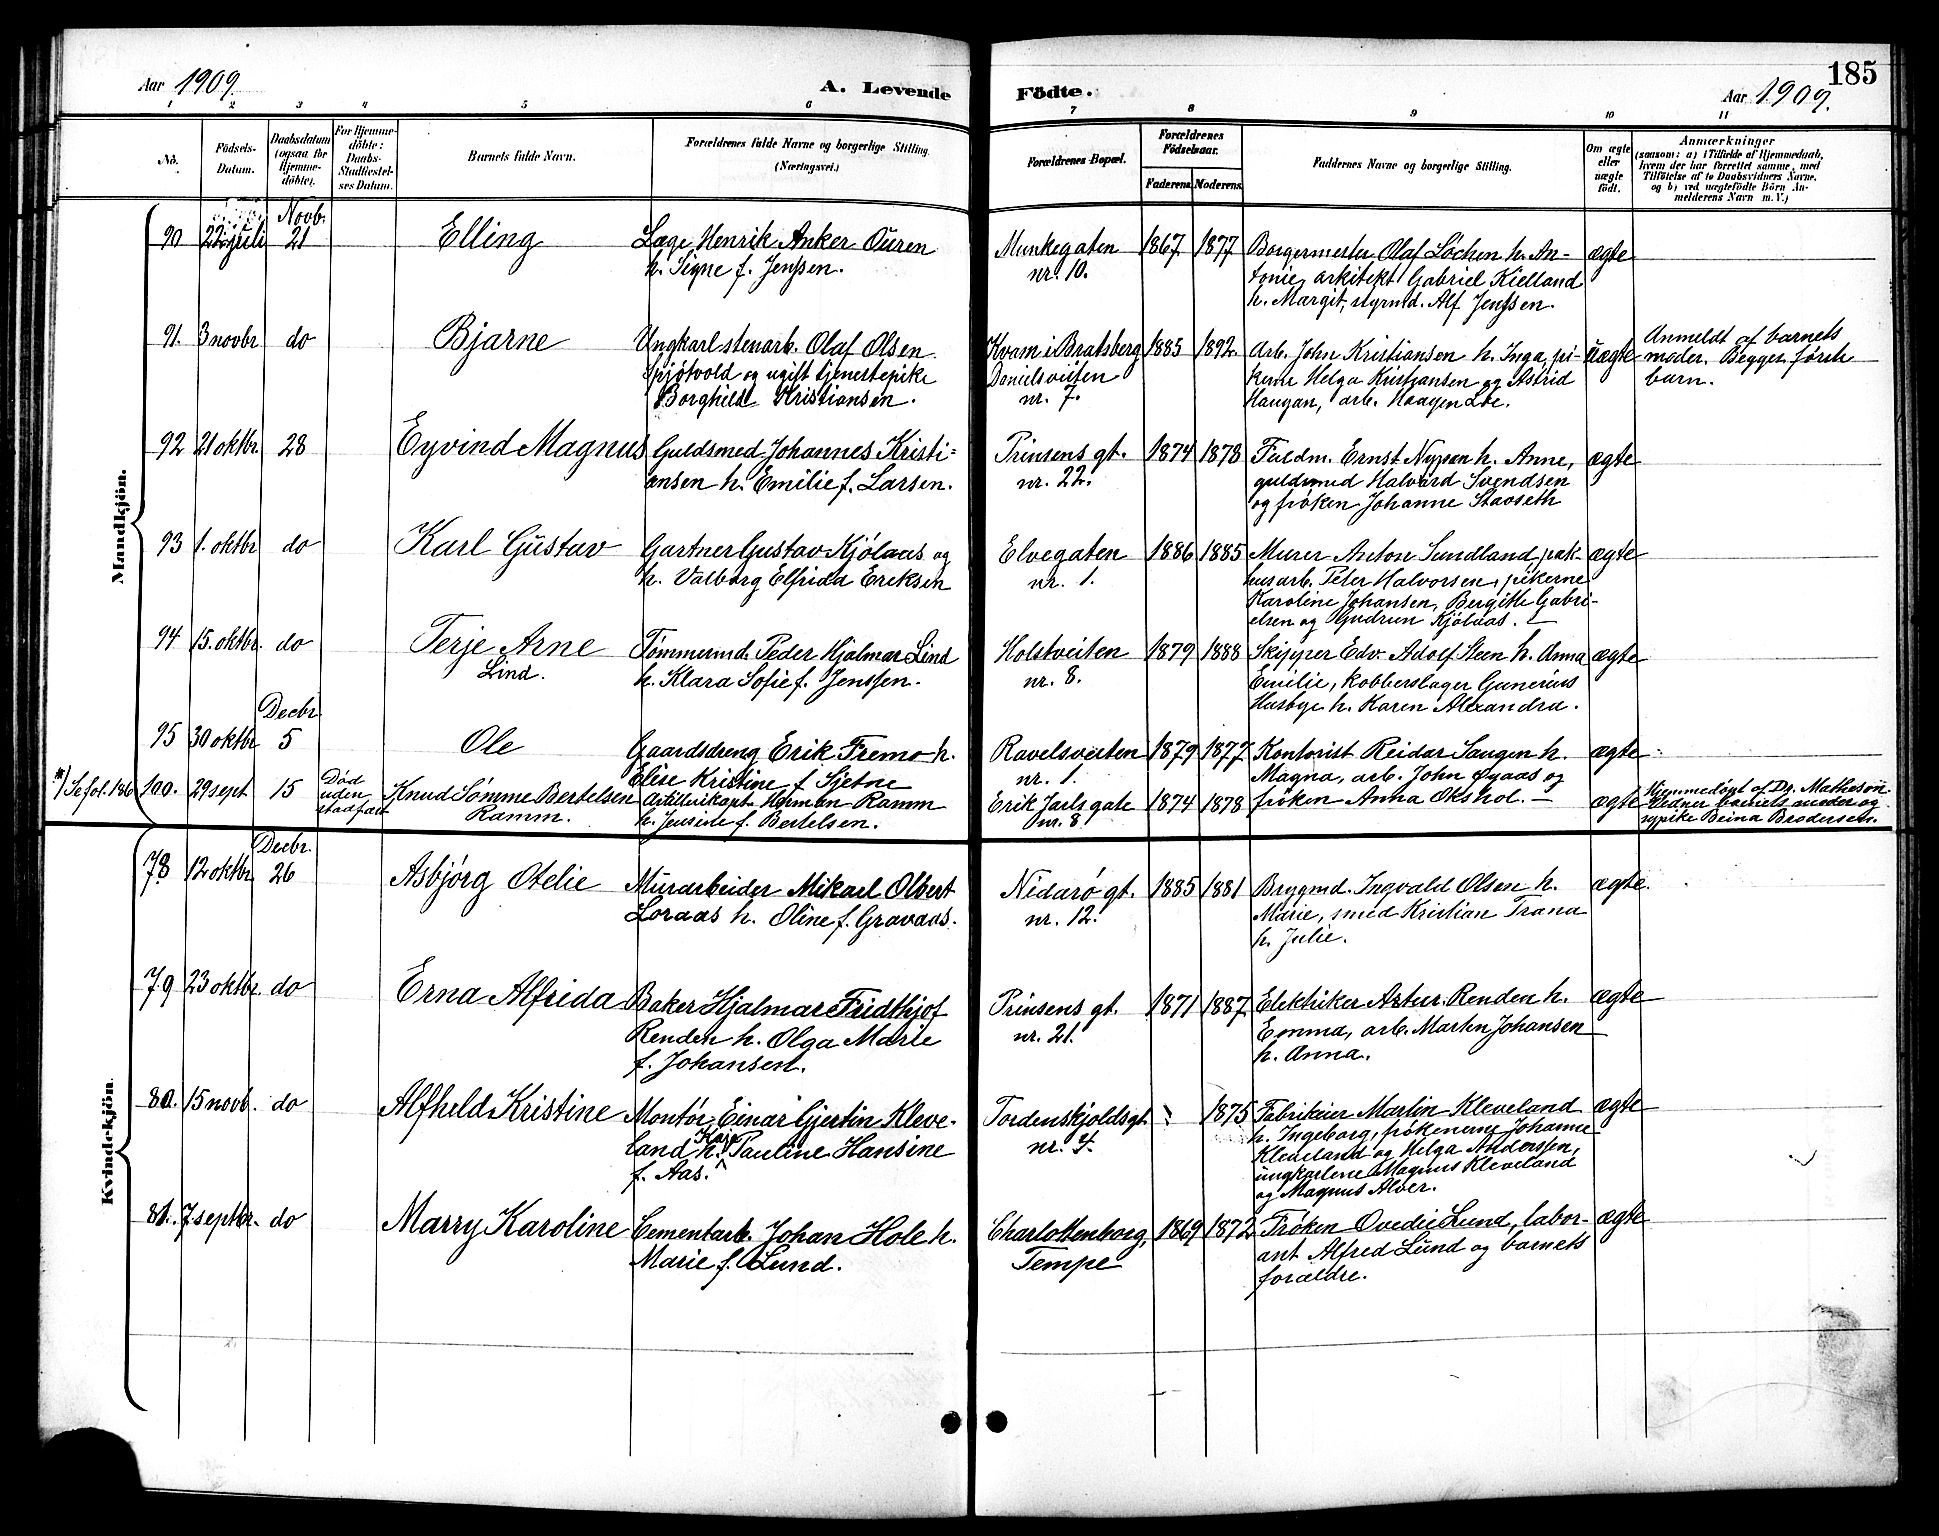 Aar 1909. A. Levende Födte. Aar 1909. 185
1 2 3 4 5 6 7 8 9 10 11
No.
Födsels-
Datum.
Daabsdatum
(ogsaa for
Hjemme-
döbte).
For Hjemme-
döbte:
Daabs-
Stadfæstel-
ses Datum.
Barnets fulde Navn.
Forældrenes fulde Navne og borgerlige Stilling.
(Næringsvei.)
Forældrenes Bopæl.
Forældrenes
Födselsaar.
Faderens. Moderens.
Faddernes Navne og borgerlige Stilling.
Om ægte
eller
uægte
födt.
Anmærkninger
(saasom: a) i Tilfælde af Hjemmedaab,
hvem der har forrettet samme, med
Tilföielse af to Daabsvidners Navne,
og b) ved uægtefödte Börn An-
melderens Navn m. V.)
Mandkjön.
90 22 juli Novb. 21
Elling
Læge Henrik Anker Ouren
h. Signe f. Jenssen.
Munkegaten
nr. 10.
1867 1877
Borgermester Olaf Löchen h. An-
tonie, arkitekt Gabriel Kielland
h. Margit, styrmd. Alf Jenssen.
ægte
91. 3 novbr do
Bjarne
Ungkarl stenarb. Olaf Olsen
Spjötvold og ugift tjenestepike
Borghild Kristiansen.
Kvam i Bratsberg
Danielsveiten
nr. 7.
1885 1892
Arb. John Kristiansen h. Inga, pi-
kerne Helga Kristiansen og Astrid
Haugan, arb. Haagen Loe.
uægte
Anmeldt af barnets
moder. Begges förste
barn.
92 21 oktbr. 28
Eyvind Magnus
Guldsmed Johannes Kristi-
ansen h. Emilie f. Larsen.
Prinsens gt.
nr. 22.
1874 1878
Fuldm. Ernst Nypan h. Anne,
guldsmed Halvard Svendsen
og fröken Johanne Stavseth
ægte
93 1. oktbr do
Karl Gustav
Gartner Gustav Kjölaas og
h. Valborg Elfrida Eriksen
Elvegaten
nr. 1.
1886 1885
Murer Anton Sundland, pak-
husarb. Peter Halvorsen, pikerne
Karoline Johansen, Bergithe Gabri-
elsen og Gudrun Kjölaas. —
ægte
94 15. oktbr. do
Terje Arne
Lind.
Tömmermd. Peder Hjalmar Lind
h. Klara Sofie f. Jenssen.
Holstveiten
nr. 8.
1879 1888
Skipper Edv. Adolf Steen h. Anna
Emilie, kobberslager Gunerius
Husbye h. Karen Alexandra.
ægte
95 30 oktbr Decbr 5
Ole
Gaardsdreng Erik Fremo h.
Elise Kristine f. Sjetne
Ravelsveiten
nr. 1.
1879 1877
Kontorist Reidar Saugen h.
Magna, arb. John Öyaas og
fröken Anna Okshol. —
ægte
*) Se fol. 186 100. 29 sept 15
Död
uden
stadfæst
Knud Sömme Bertelsen
Ramm.
Artillerikapt. Herman Ramm
h. Jensine f. Bertelsen.
Erik Jarls gate
nr. 8
1874 1878
ægte
Hjemmedöpt af Dr. Matheson
Vidner barnets moder og
sypike Beina Brodersen.
Kvindekjön.
78 12 oktbr Decbr. 26
Asbjörg Otelie
Murarbeider Mikael Olbert
Loraas h. Oline f. Gravaas.
Nidarö gt.
nr. 12.
1885 1881
Brygmd. Ingvald Olsen h.
Marie, smed Kristian Trana
h. Julie.
ægte.
79 23 oktbr. do
Erna Alfrida
Baker Hjalmar Fridthjof
Renden h. Olga Marie
f. Johansen.
Prinsens gt.
nr. 21.
1871 1887
Elektriker Artur Renden h.
Emma, arb. Martin Johansen
h. Anna.
ægte
80. 15 novb. do
Alfhild Kristine
Montör Einar Gjertin Kleve-
land h. Kaja Pauline Hansine
f. Aas.
Tordenskjoldsgt.
nr. 4.
1875
Fabrikeier Martin Kleveland
h. Ingeborg, frökenerne Johanne
Kleveland og Helga Anderssen,
ungkarlene Magnus Kleveland
og Magnus Alver.
ægte
81. 7 septbr. do
Marry Karoline
Cementarb. Johan Hole h.
Marie f. Lund.
Charlottenborg,
Tempe
1869 1872
Fröken Ovedie Lund, labor-
ant Alfred Lund og barnets
forældre.
ægte